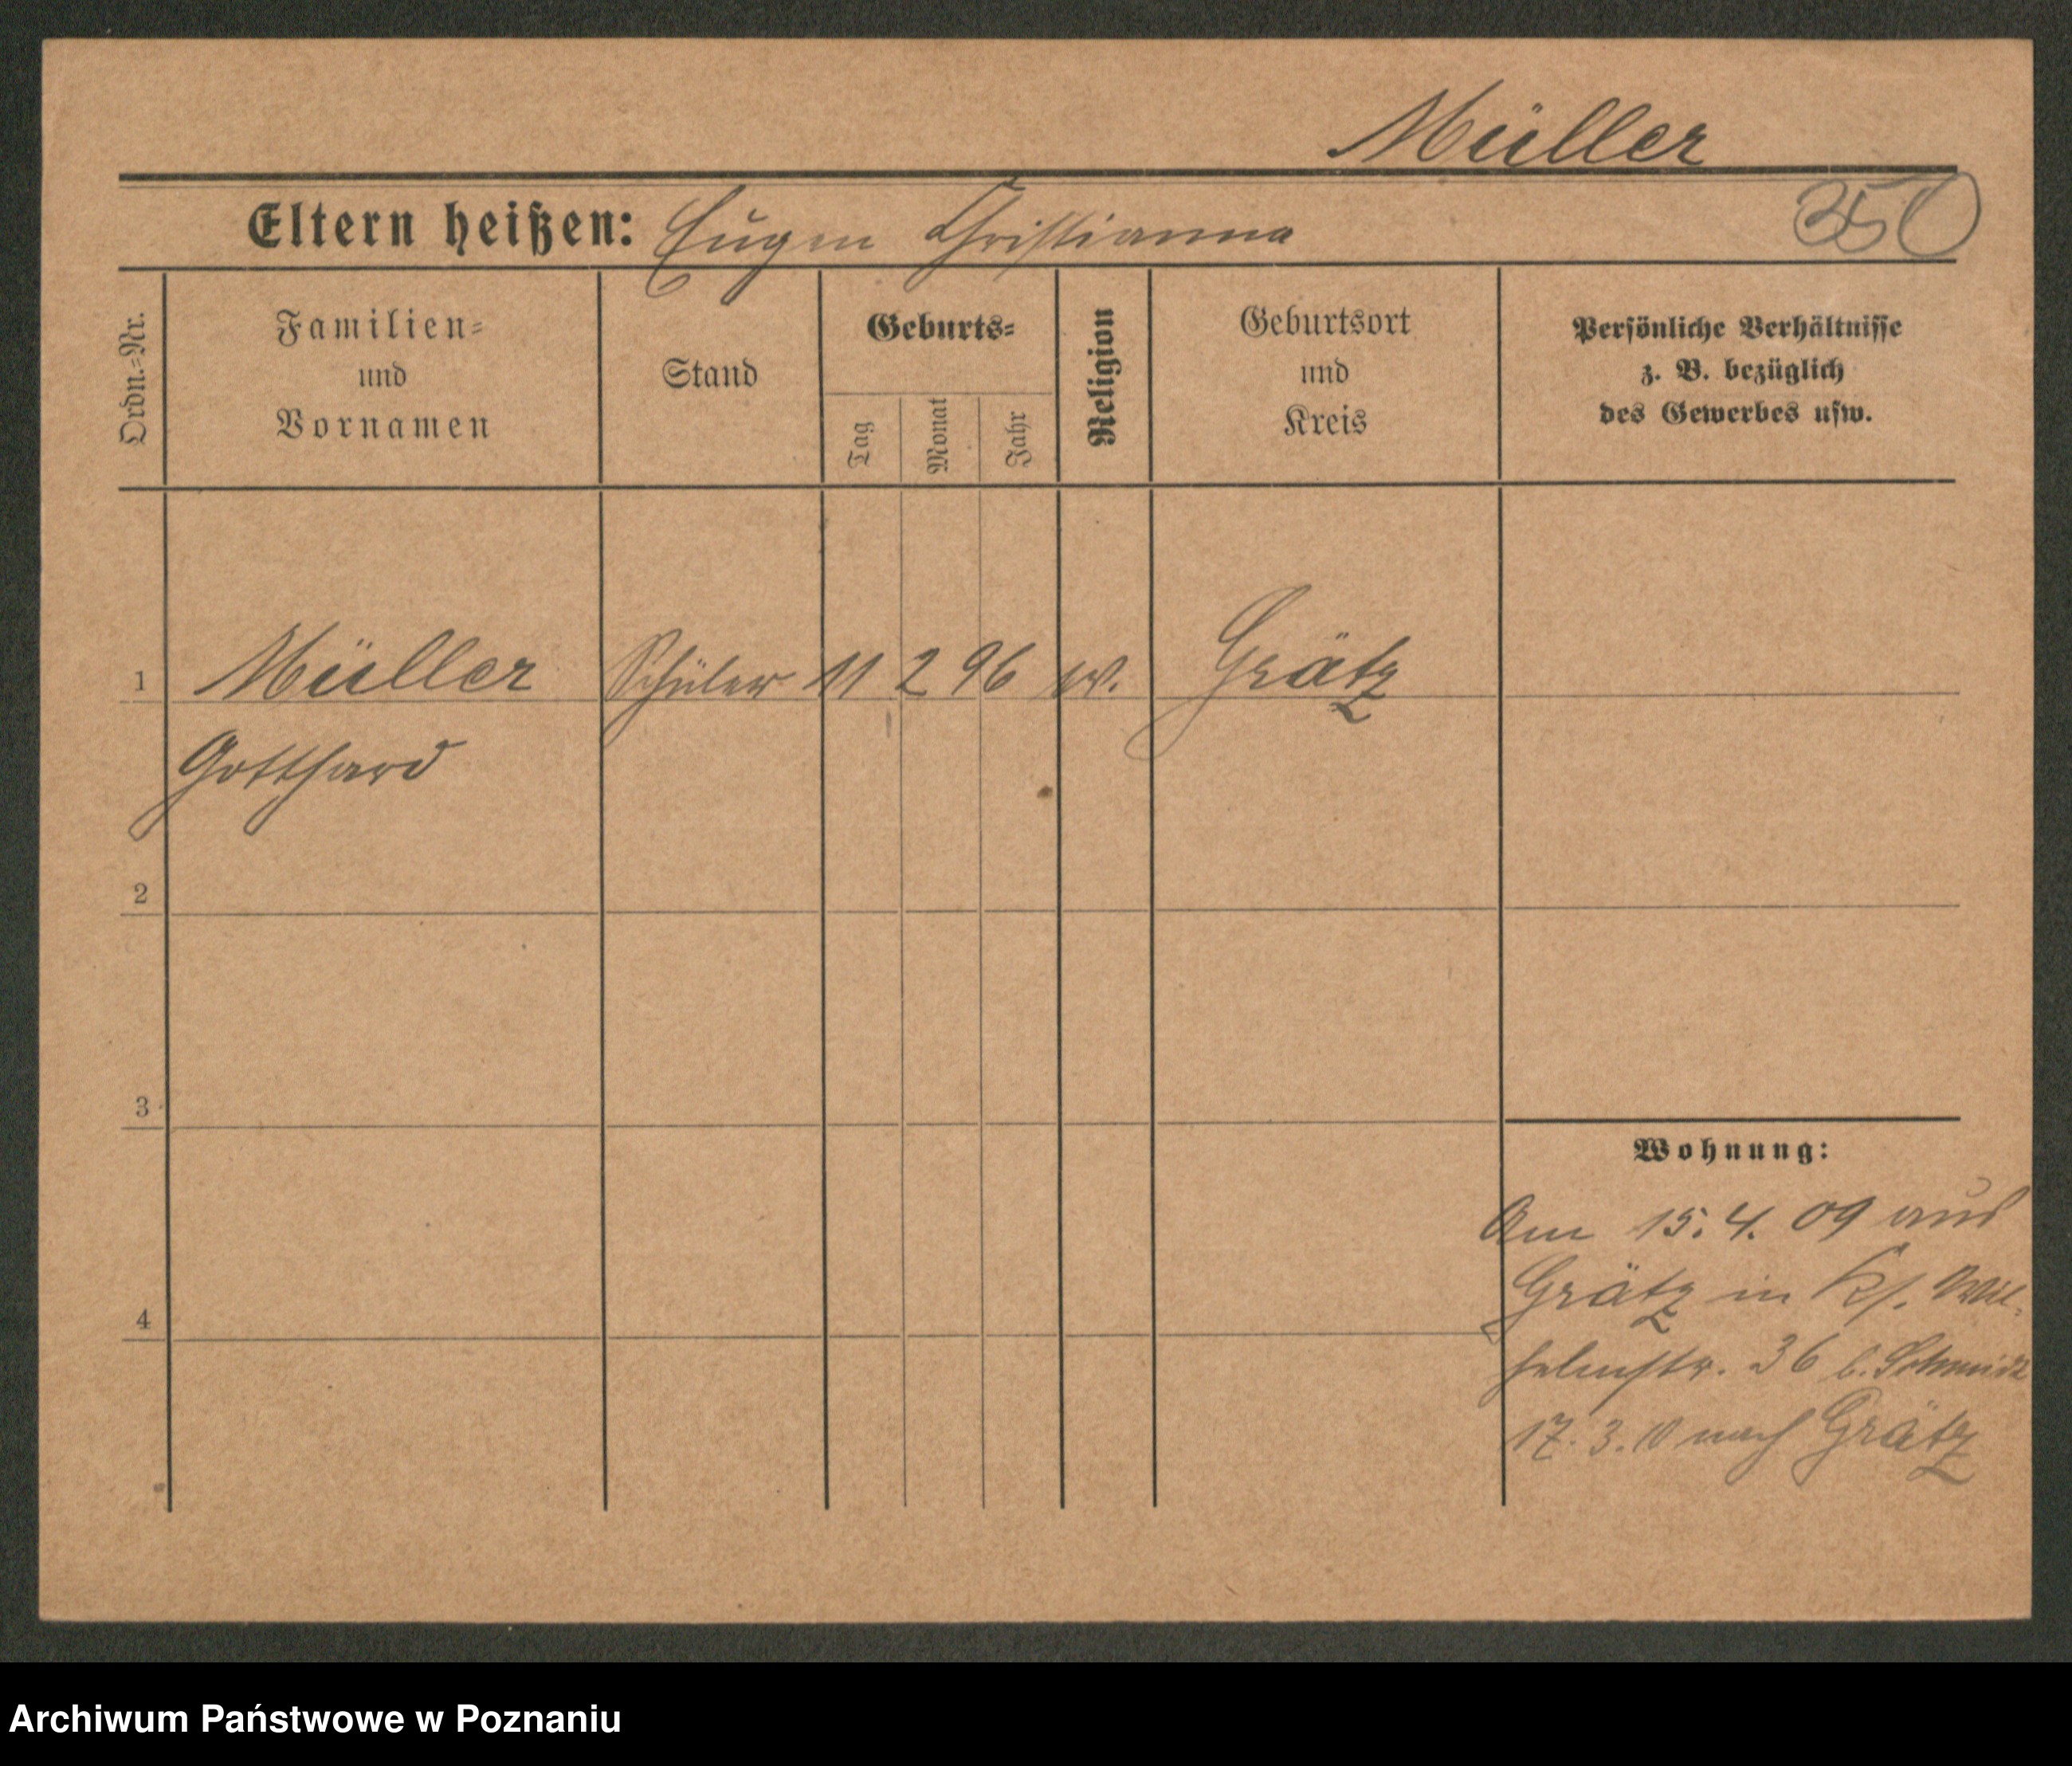 Müller
Eltern heißen: Eugen Christianna
350
Ordn.=Nr.
Familien=
und
Vornamen
Stand
Geburts=
Tag
Monat
Jahr
Religion
Geburtsort
und
Kreis
Persönliche Verhältnisse
z. B. bezüglich
des Gewerbes usw.
1 Müller Schüler 11 2 96 Grätz
Gotthard
2
3
4
Wohnung:
Am 15.4.09 aus
Grätz in Wil-
helmstr. 36 b. Schmidt
17.3.10 nach Grätz
Archiwum Państwowe w Poznaniu